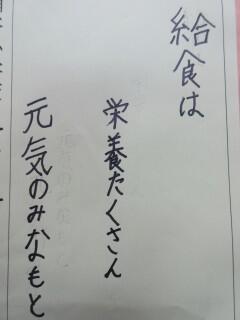 給食は
栄養たくさん
元気のみなもと